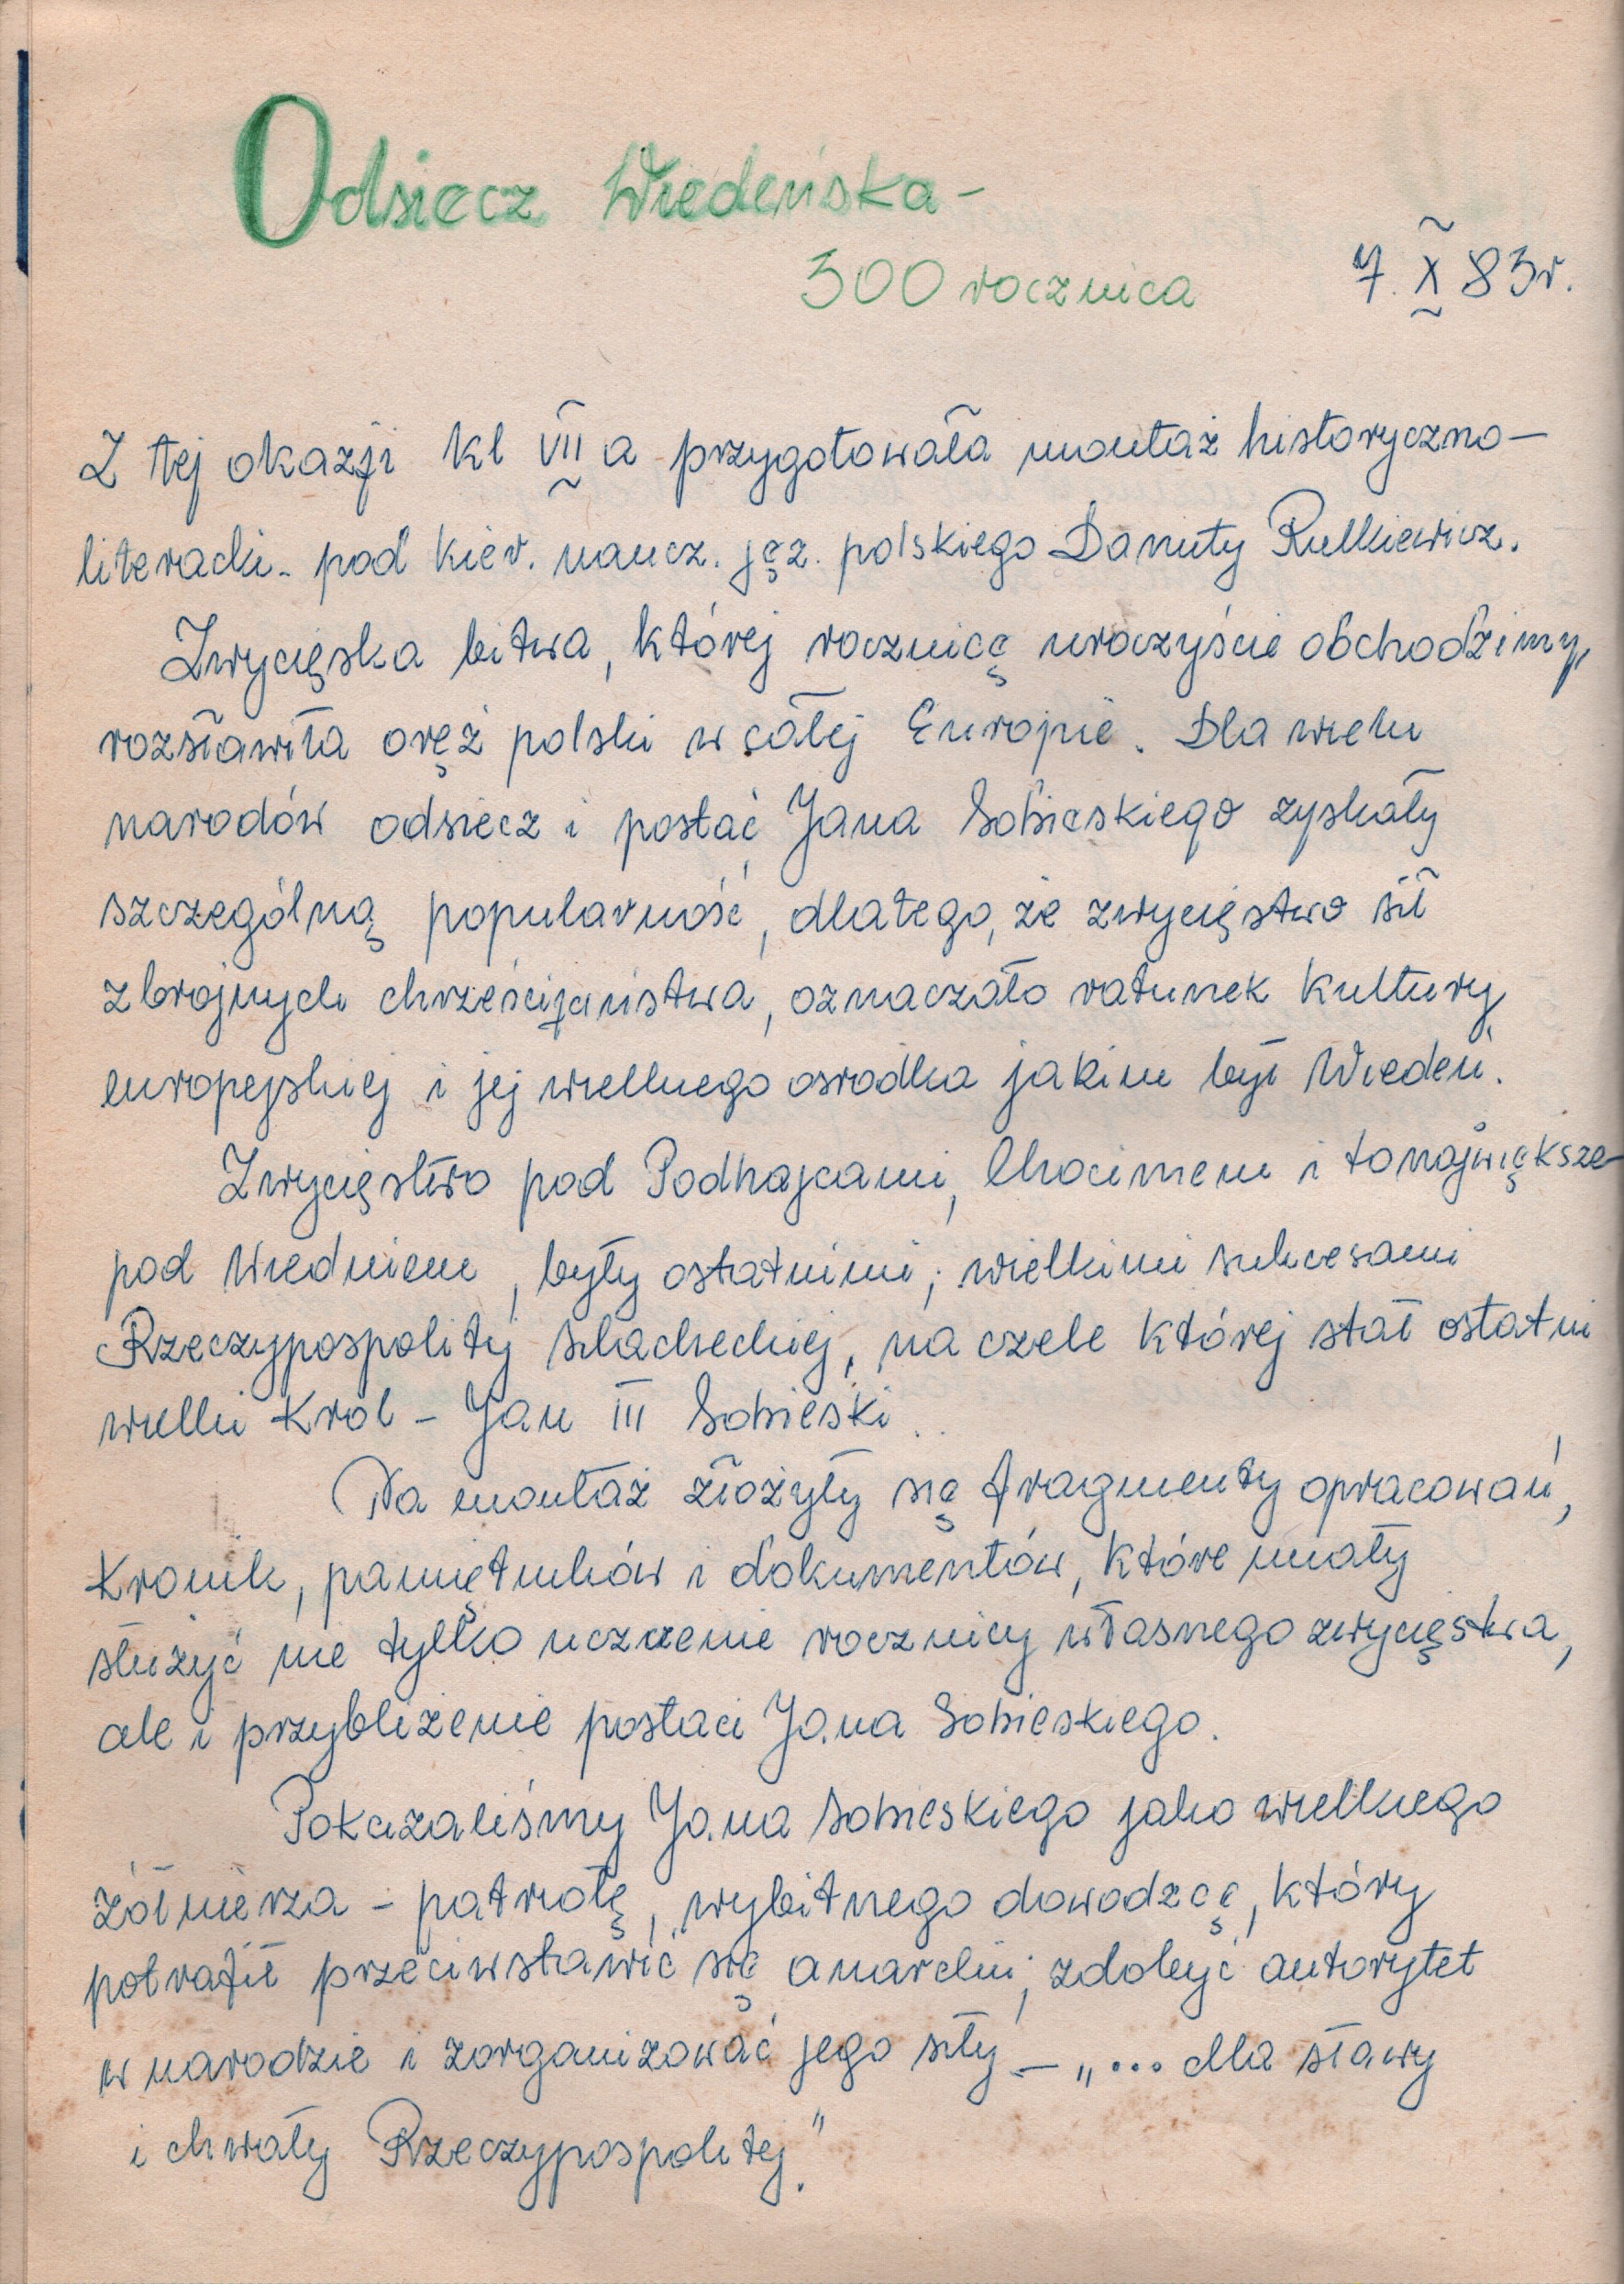 Odsiecz Wiedeńska -
300 rocznica
7. X 83r.
Z tej okazji kl VII a przygotowała montaż historyczno-
literacki - pod kier. naucz. jęz. polskiego Danuty Rulkiewicz.
Zwycięska bitwa, której rocznicę uroczyście obchodzimy,
rozsławiła oręż polski w całej Europie. Dla wielu
narodów odsiecz i postać Jana Sobieskiego zyskały
szczególną popularność, dlatego, że zwycięstwo sił
zbrojnych chrześcijaństwa, oznaczało ratunek kultury
europejskiej i jej wielkiego osrodka jakim był Wiedeń.
Zwycięstwo pod Podhajcami, Chocimem i to największe -
pod Wiedniem, były ostatnimi, wielkimi sukcesami
Rzeczypospolitej szlacheckiej, na czele której stał ostatni
wielki Król - Jan III Sobieski.
Na montaż złożyły się fragmenty opracowań,
kronik, pamiętników i dokumentów, które miały
służyć nie tylko uczczenie rocznicy własnego zwycięstwa,
ale i przybliżenie postaci Jana Sobieskiego.
Pokazaliśmy Jana Sobieskiego jako wielkiego
żołnierza - patriotę, wybitnego dowodzcę, który
potrafił przeciwstawić się anarchii, zdobyć autorytet
w narodzie i zorganizować jego siły - „... dla sławy
i chwały Rzeczypospolitej."